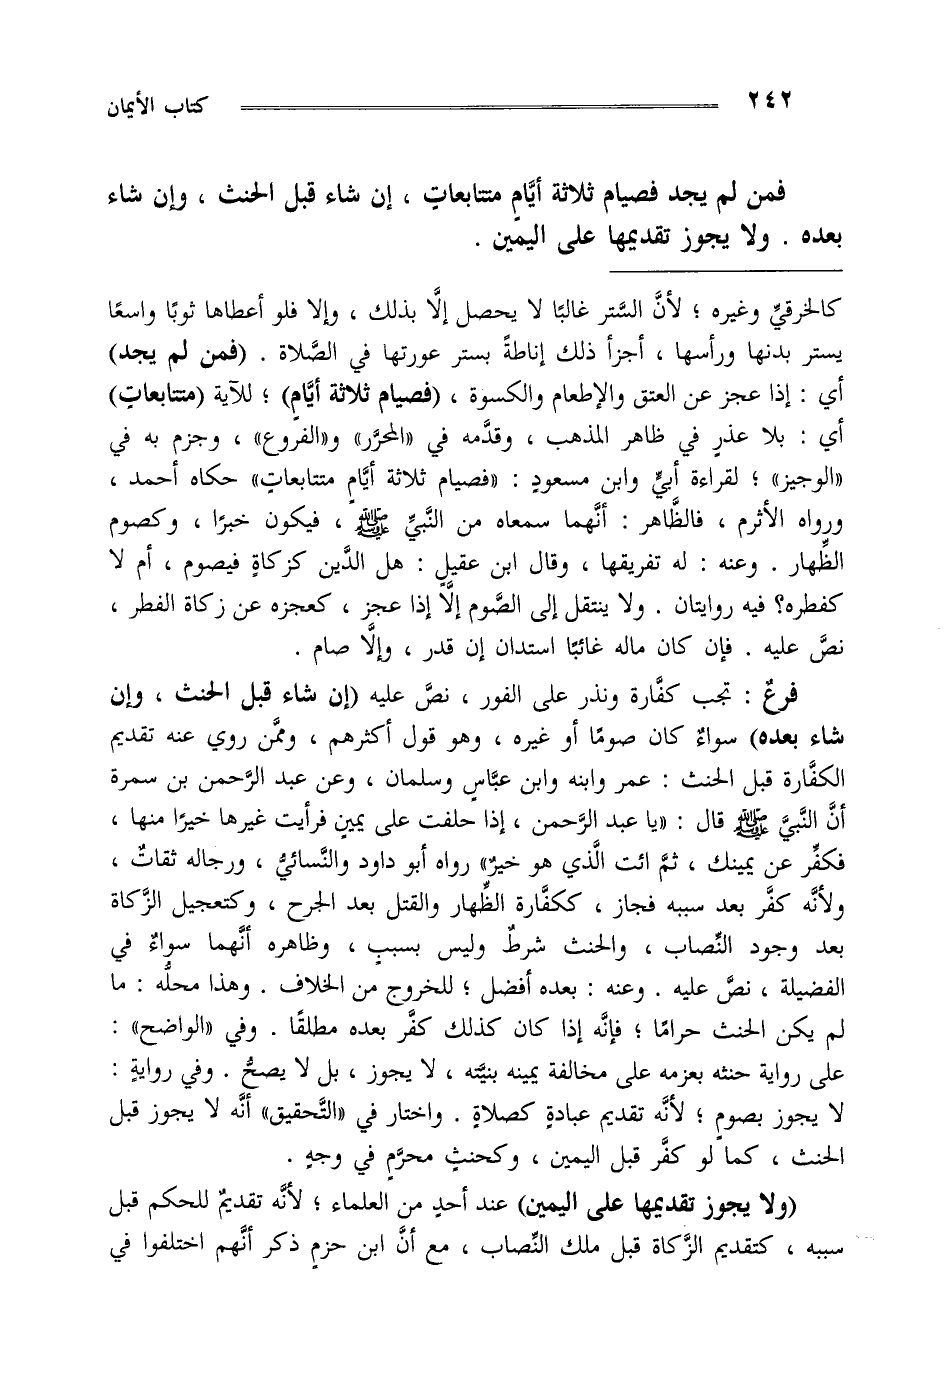 ٢٤٢ كتاب الأيمان
فمن لم يجد فصيام ثلاثة أيَّامٍ متتابعاتٍ ، إن شاء قبل الحنث ، وإن شاء
بعده . ولا يجوز تقديمها على اليمين .
كالخرقيِّ وغيره ؛ لأنَّ السَّتر غالبًا لا يحصل إلَّا بذلك ، وإلا فلو أعطاها ثوبًا واسعًا
يستر بدنها ورأسها ، أجزأ ذلك إناطةً بستر عورتها في الصَّلاة . (فمن لم يجد)
أي : إذا عجز عن العتق والإطعام والكسوة ، (فصيام ثلاثة أيَّامٍ) ؛ للآية (متتابعاتٍ)
أي : بلا عذرٍ في ظاهر المذهب ، وقدَّمه في «المحرَّر» و«الفروع» ، وجزم به في
«الوجيز» ؛ لقراءة أبيٍّ وابن مسعودٍ : «فصيام ثلاثة أيَّامٍ متتابعاتٍ» حكاه أحمد ،
ورواه الأثرم ، فالظَّاهر : أنَّهما سمعاه من النَّبيِّ ﷺ ، فيكون خبرًا ، وكصوم
الظِّهار . وعنه : له تفريقها ، وقال ابن عقيلٍ : هل الدَّين كزكاةٍ فيصوم ، أم لا
كفطره؟ فيه روايتان . ولا ينتقل إلى الصَّوم إلَّا إذا عجز ، كعجزه عن زكاة الفطر ،
نصَّ عليه . فإن كان ماله غائبًا استدان إن قدر ، وإلَّا صام .
فرعٌ : تجب كفَّارة ونذر على الفور ، نصَّ عليه (إن شاء قبل الحنث ، وإن
شاء بعده) سواءٌ كان صومًا أو غيره ، وهو قول أكثرهم ، وممَّن روي عنه تقديم
الكفَّارة قبل الحنث : عمر وابنه وابن عبَّاسٍ وسلمان ، وعن عبد الرَّحمن بن سمرة
أنَّ النَّبيَّ ﷺ قال : «يا عبد الرَّحمن ، إذا حلفت على يمينٍ فرأيت غيرها خيرًا منها ،
فكفِّر عن يمينك ، ثمَّ ائت الَّذي هو خيرٌ» رواه أبو داود والنَّسائيُّ ، ورجاله ثقاتٌ ،
ولأنَّه كفَّر بعد سببه فجاز ، ككفَّارة الظِّهار والقتل بعد الجرح ، وكتعجيل الزَّكاة
بعد وجود النِّصاب ، والحنث شرطٌ وليس بسببٍ ، وظاهره أنَّهما سواءٌ في
الفضيلة ، نصَّ عليه . وعنه : بعده أفضل ؛ للخروج من الخلاف . وهذا محلُّه : ما
لم يكن الحنث حرامًا ؛ فإنَّه إذا كان كذلك كفَّر بعده مطلقًا . وفي «الواضح» :
على رواية حنثه بعزمه على مخالفة يمينه بنيَّته ، لا يجوز ، بل لا يصحُّ . وفي روايةٍ :
لا يجوز بصومٍ ؛ لأنَّه تقديم عبادةٍ كصلاةٍ . واختار في «التَّحقيق» أنَّه لا يجوز قبل
الحنث ، كما لو كفَّر قبل اليمين ، وكحنثٍ محرَّمٍ في وجهٍ .
(ولا يجوز تقديمها على اليمين) عند أحدٍ من العلماء ؛ لأنَّه تقديمٌ للحكم قبل
سببه ، كتقديم الزَّكاة قبل ملك النِّصاب ، مع أنَّ ابن حزمٍ ذكر أنَّهم اختلفوا في